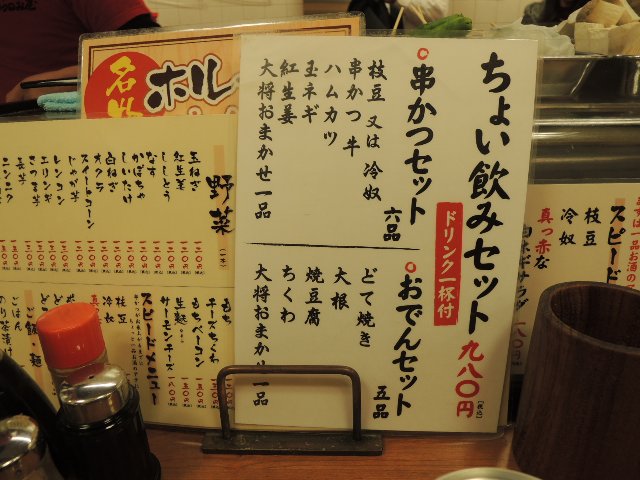 ちょい飲みセット 九八〇円 [税込]
ドリンク一杯付
串かつセット 六品
枝豆 又は 冷奴
串かつ 牛
ハムカツ
玉ネギ
紅生姜
大将おまかせ一品
おでんセット 五品
どて焼き
大根
焼豆腐
ちくわ
大将おまかせ一品
ホル
野菜
玉ねぎ
紅生姜
ししとう
なす
かぼちゃ
しいたけ
白ねぎ
オクラ
スイートコーン
じゃが芋
レンコン
エリンギ
さつま芋
長芋
ニンニク
もち
チーズちくわ
もちベーコン
生麩
サーモンチーズ
スピードメニュー
枝豆
冷奴
ご飯・麺
ごはん
のり茶漬け
スピード
枝豆
冷奴
真っ赤な